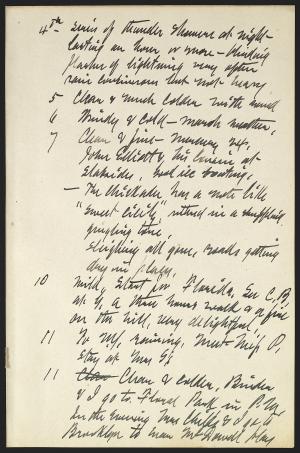 4th - series of thunder showers at night -
lasting an hour or more - blinding
flashes of lightning very often
rain continuous but not heavy
5 Clear & much colder with wind
6 Windy & cold - march weather,
7 Clear & fine - mercury
John Elliott & his cousin at
Slabsides, ice boating,
- The chickadee has a note like
"sweet , uttered in a shuffling
gingling tone,
sleighing all gone, roads getting
dry in places,
10 mild, Start for Florida, See C.B.
at a three hours walk & a fire
on the hill, very delightful,
11 To N.Y. raining, meet Miss P.
stay at Mrs
11 Clear Clear & colder,
& I go to Floral Park in P.M.
In the evening Mrs & I go to
Brooklyn to